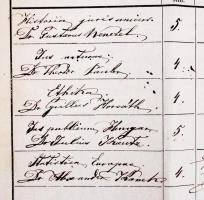 Historia juris
Dr. Gustavus Wenczel 5.
Jus naturae
Dr. Theodor Pauler 4.
Ethica
Dr. Cyrillus Horváth 4.
Jus publicum Hungar
Dr Julius Kautz 5.
Statistica Europae
Dr. Alexander Konek 4.